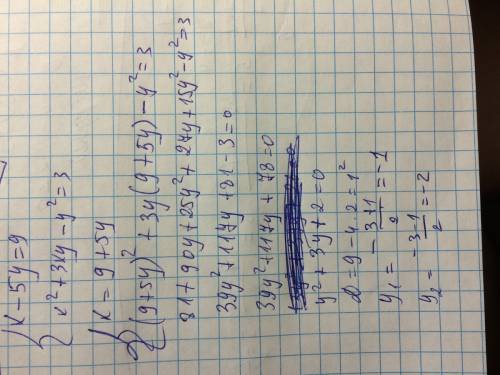 { x - 5y = 9
x² + 3xy - y² = 3
{ x = 9 + 5y
(9+5y)² + 3y(9+5y) - y² = 3
81 + 90y + 25y² + 27y + 15y² - y² = 3
39y² + 117y + 81 - 3 = 0
39y² + 117y + 78 = 0
y² + 3y + 2 = 0
D = 9 - 4·2 = 1²
y₁ = (-3+1)/2 = -1
y₂ = (-3-1)/2 = -2